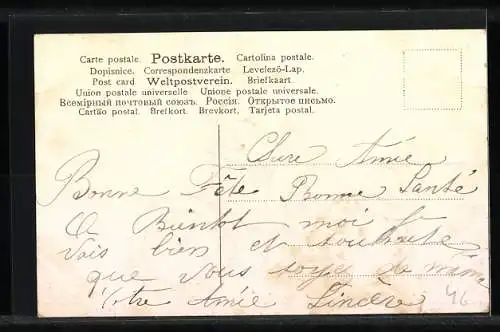 Carte postale. Postkarte. Cartolina postale.
Dopisnice. Correspondenzkarte Levelező-Lap.
Post card Weltpostverein. Briefkaart
Union postale universelle Unione postale universale.
Всемірный почтовый союзъ. Россія. Открытое письмо.
Cartão postal. Brefkort. Brevkort, Tarjeta postal.
Chere Amie
Bonne Fête Bonne Santé
A Bientot moi je
vais bien et souhaite
que vous soyez de même
Votre Amie Sincère
46